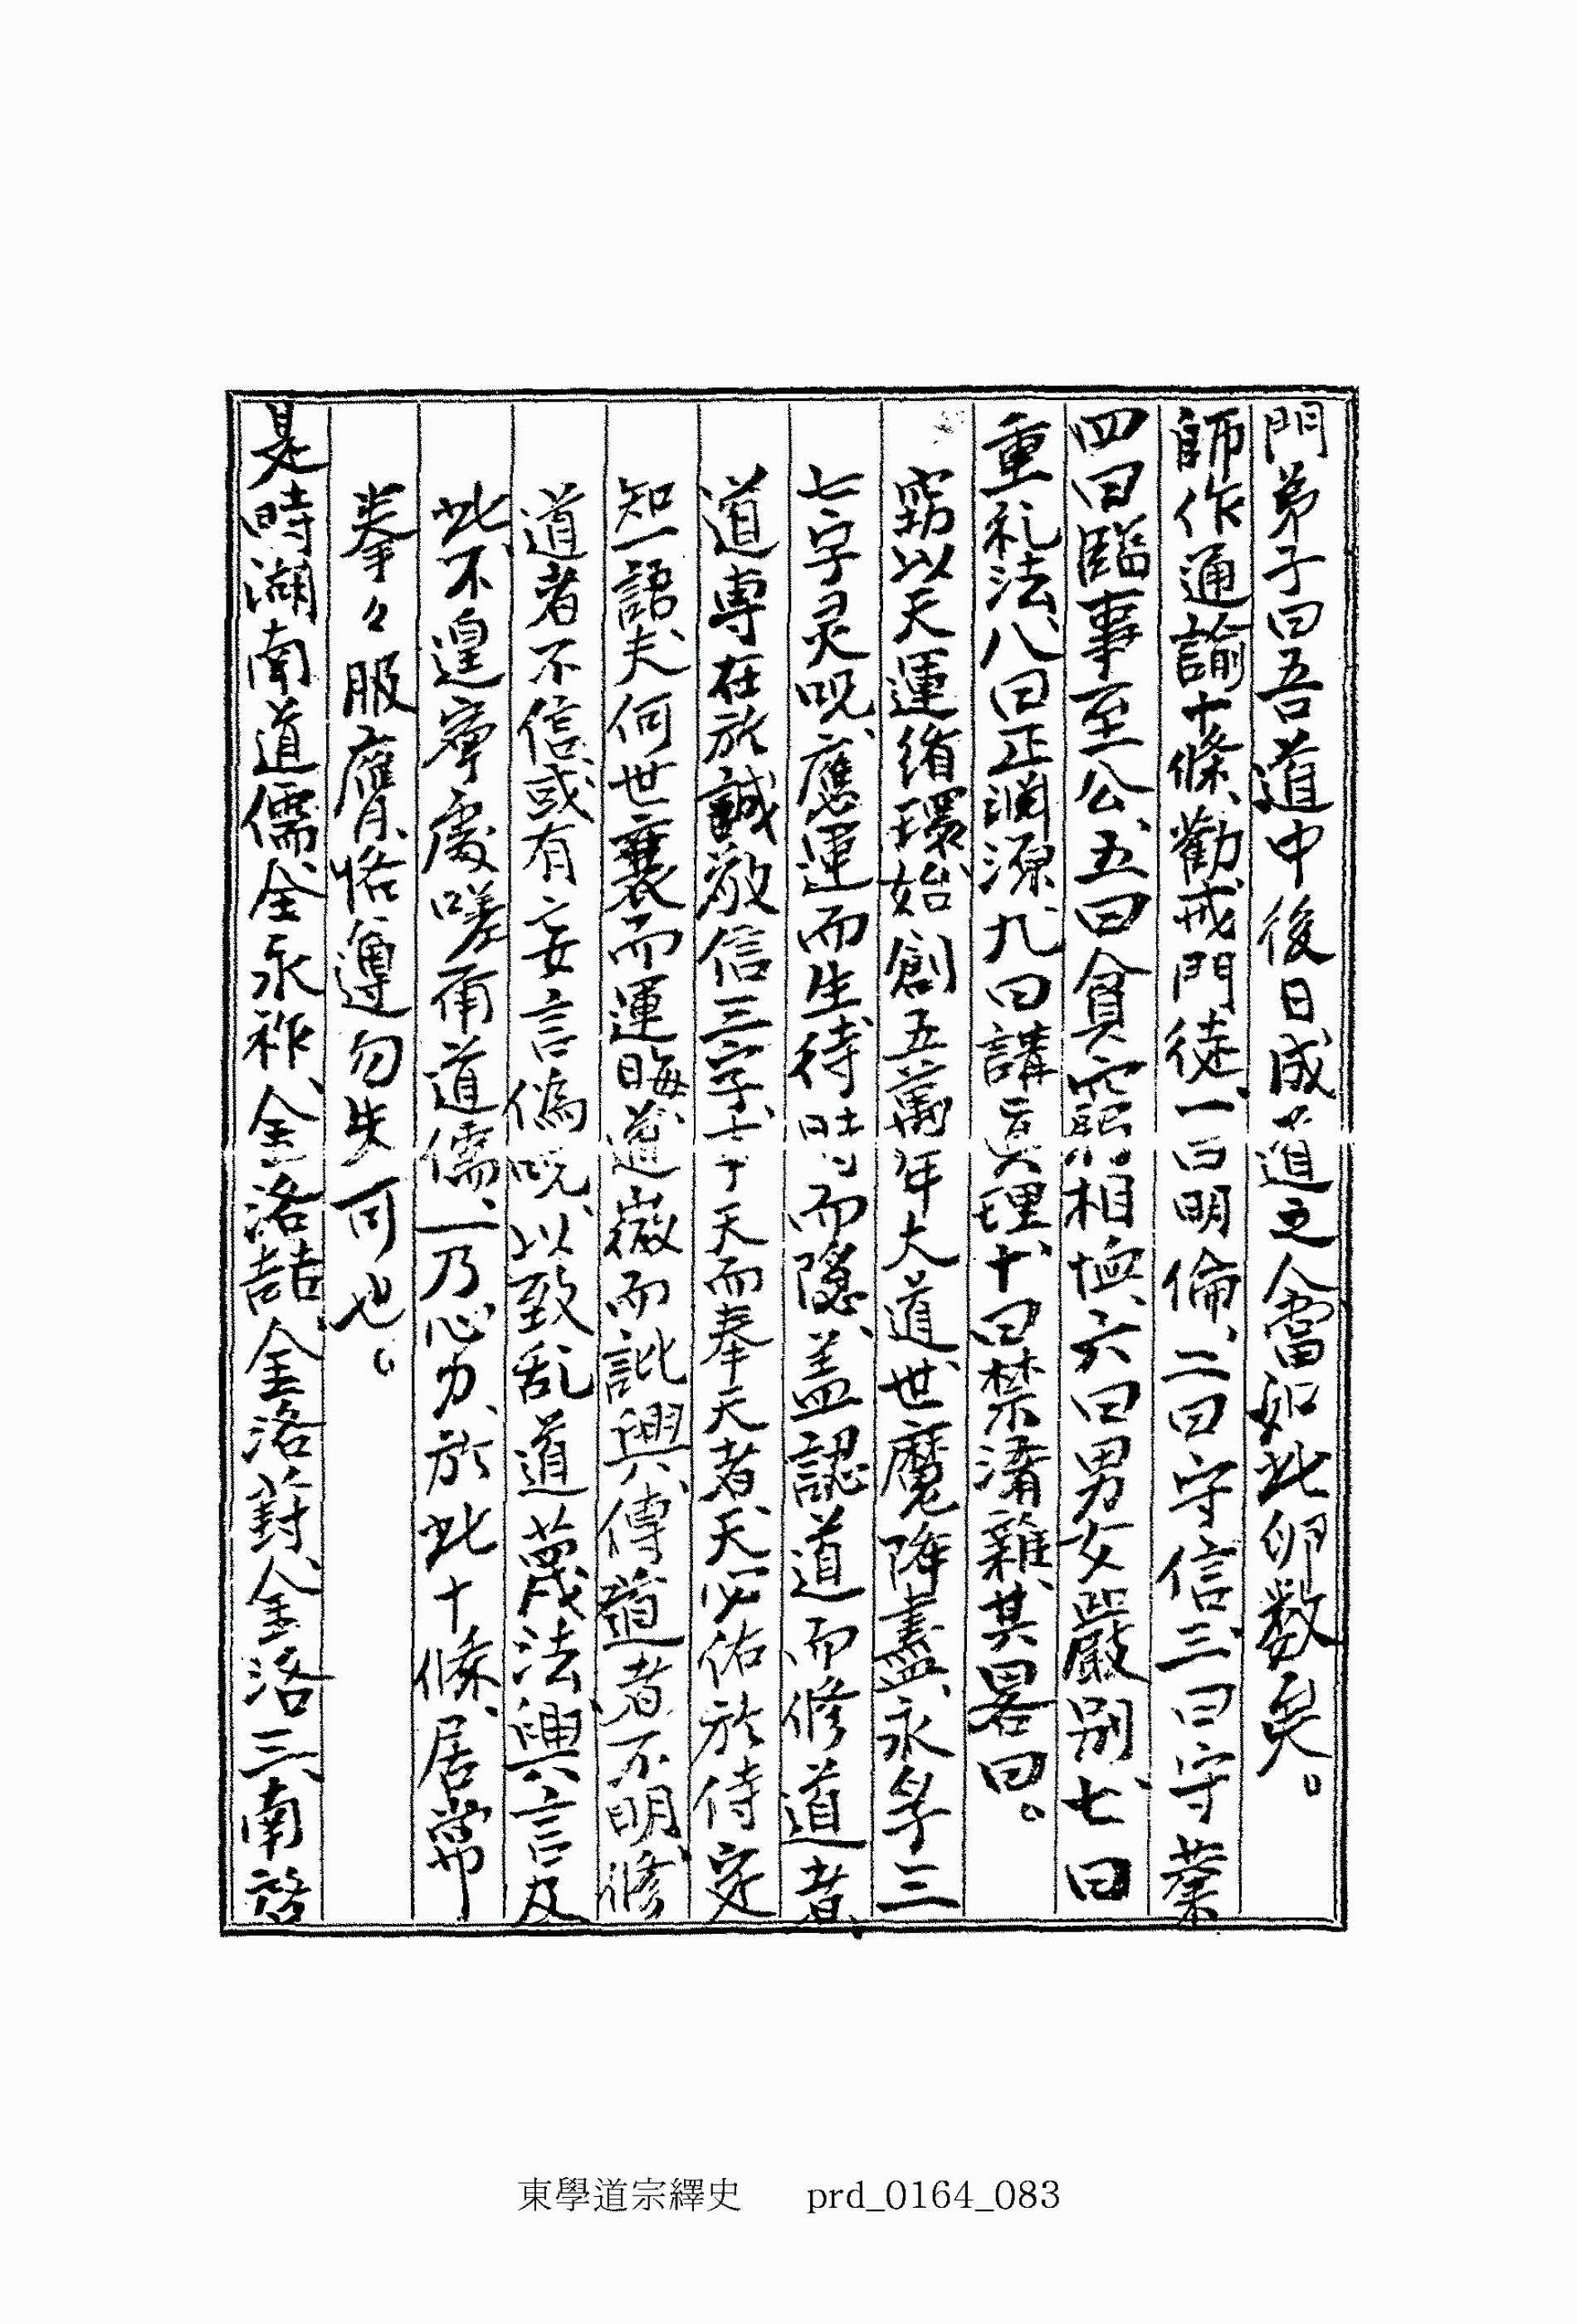 門弟子曰吾道中後日成道之人當如此卵数矣。
師作通諭十條、勸戒門徒、一曰明倫、二曰守信、三曰守業
四曰臨事至公、五曰貧窮相恤、六曰男女嚴別、七曰
重礼法、八曰正淵源、九曰講眞理、十曰禁淆雜、其畧曰。
窃以天運循環、始創五萬年大道、世魔降盡、永孚三
七字灵呪、應運而生、待時而隱、盖認道而修道者、
道専在於誠敬信三字、七十天而奉天者、天必佑於侍定
知一語夫、何世襄而運晦、道微而訿興、傳道者不明、修
道者不信、或有妄言偽呪、以致乱道蔑法、興言及
此、不遑寧處、嗟甫道儒、一乃心力、於此十條、居常
拳々服膺、恪遵勿失可也。
是時湖南道儒、金永祚、金洛喆、金洛葑、金洛三、南啓